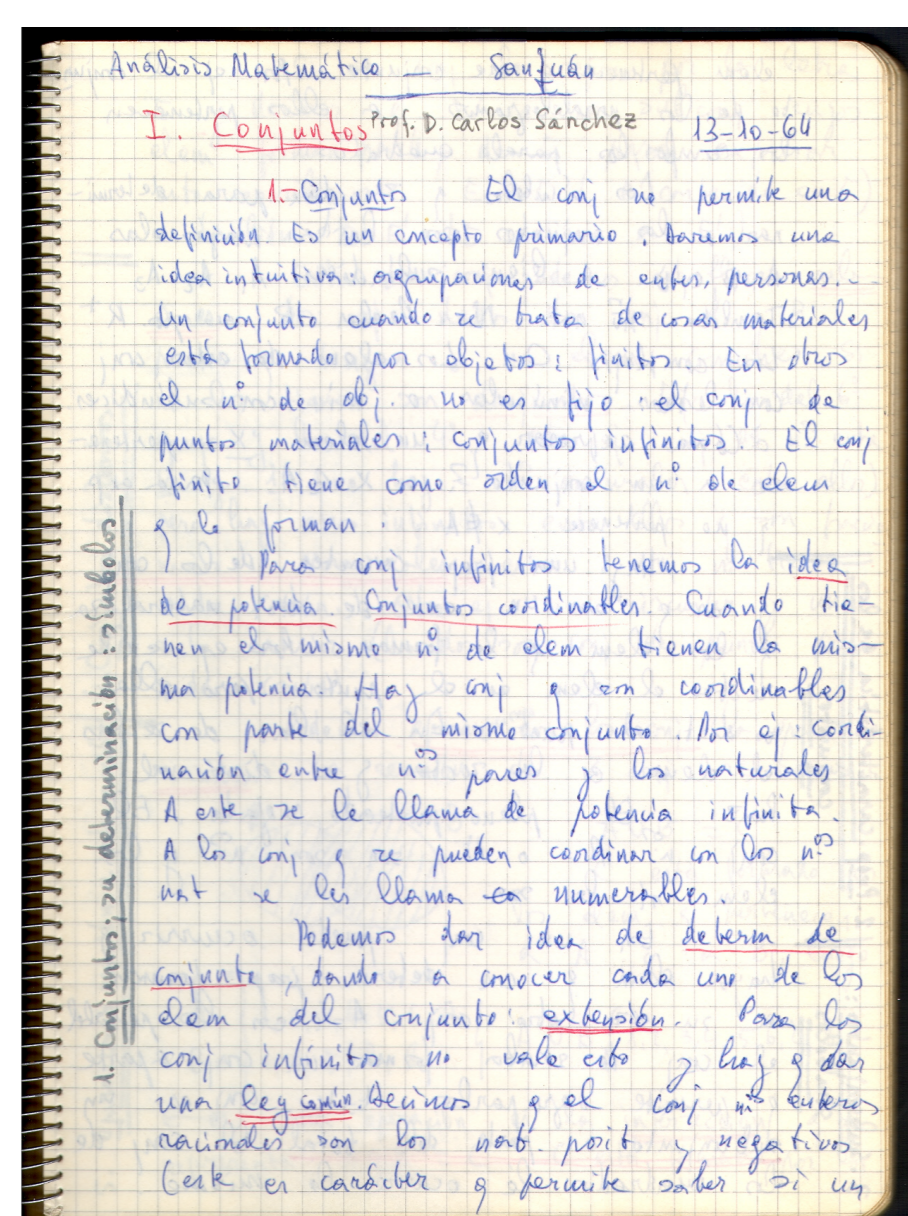 Análisis Matemático — San Juán
I. Conjuntos Prof. D. Carlos Sánchez 13-10-64
1.- Conjuntos El conj no permite una
definición. Es un concepto primario. Daremos una
idea intuitiva: agrupaciones de entes, personas.-
Un conjunto cuando se trata de cosas materiales
está formado por objetos: finitos En otros
el nº de obj no es fijo: el conj de
puntos materiales: conjuntos infinitos El conj
finito tiene como orden el nº de elem
q lo forman.
Para conj infinitos tenemos la idea
de potencia. Conjuntos coordinables. Cuando tie-
nen el mismo nº de elem tienen la mis-
ma potencia. Hay conj q son coordinables
con parte del mismo conjunto. Por ej: coordi-
nación entre nºs pares y los naturales
A este se le llama de potencia infinita.
A los conj q se pueden coordinar con los nºs
nat se les llama numerables.
Podemos dar idea de determ de
conjunto, dando a conocer cada uno de los
elem del conjunto: extensión. Para los
conj infinitos no vale esto y hay q dar
una ley común. Decimos q el conj nºs enteros
racionales son los nat. posit y negativos
(este es carácter q permite saber si un
1. Conjuntos; su determinación: símbolos